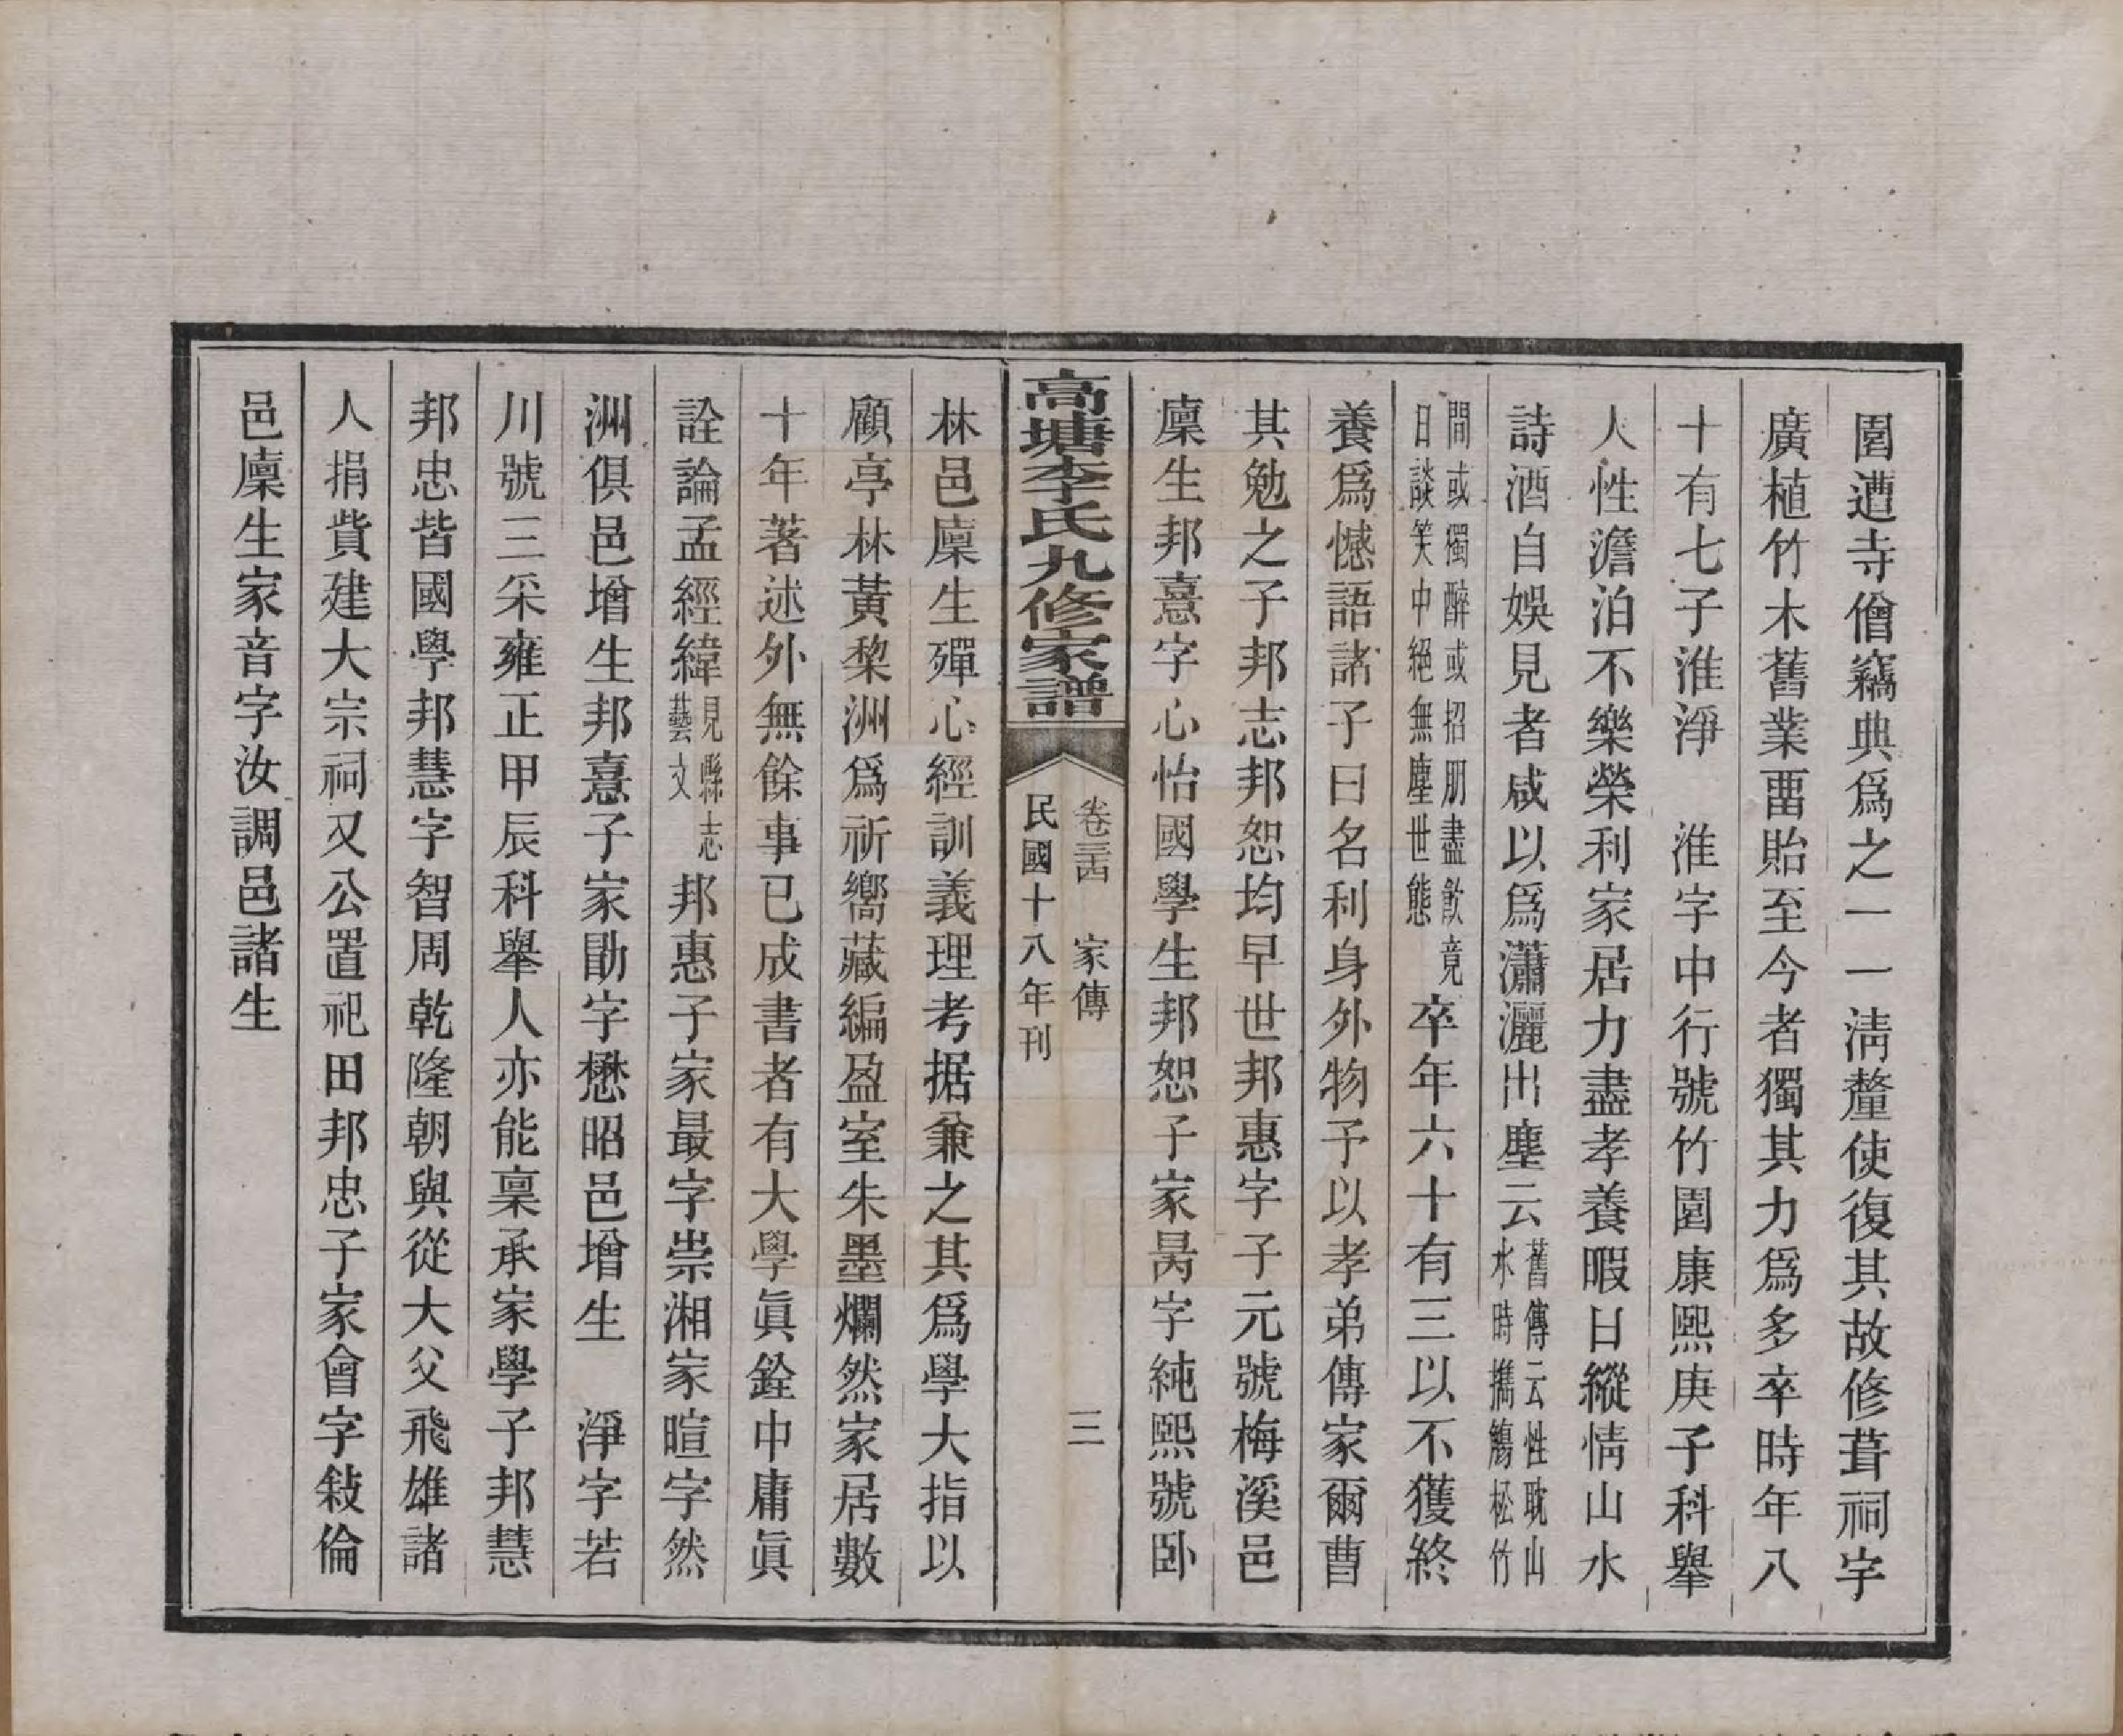 園遭寺僧竊典爲之一一淸釐使復其故修葺祠宇
廣植竹木舊業畱貽至今者獨其力爲多卒時年八
十有七子淮淨　淮字中行號竹園康熙庚子科舉
人性澹泊不樂榮利家居力盡孝養暇日縱情山水
詩酒自娛見者咸以爲瀟灑出塵云舊傳云性耽山水時攜觴松竹
間或獨醉或招朋盡飮竟日談笑中絕無塵世態卒年六十有三以不獲終
養爲憾語諸子曰名利身外物予以孝弟傳家爾曹
其勉之子邦志邦恕均早世邦惠字子元號梅溪邑
廩生邦憙字心怡國學生邦恕子家昺字純熙號卧
高塘李氏九修家譜　卷三四　家傳　三　民國十八年刊
林邑廩生殫心經訓義理考据兼之其爲學大指以
顧亭林黃棃洲爲祈嚮藏編盈室朱墨爛然家居數
十年著述外無餘事已成書者有大學眞銓中庸眞
詮論孟經緯見縣志藝文邦惠子家最字崇湘家暄字然
洲俱邑增生邦憙子家勖字懋昭邑增生　淨字若
川號三采雍正甲辰科舉人亦能稟承家學子邦慧
邦忠皆國學邦慧字智周乾隆朝與從大父飛雄諸
人捐貲建大宗祠又公置祀田邦忠子家會字敍倫
邑廩生家音字汝調邑諸生